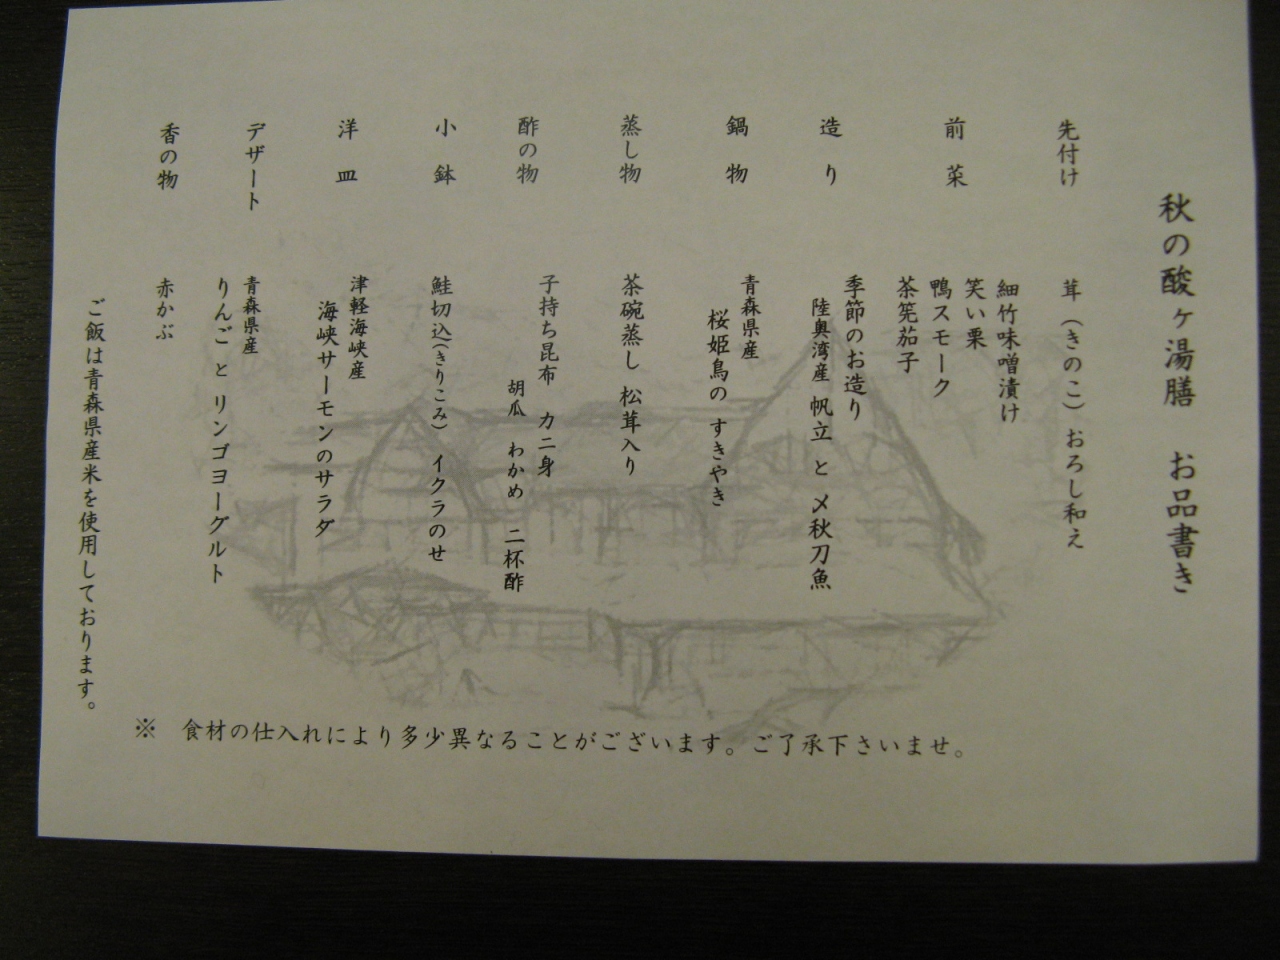 秋の酸ヶ湯膳　お品書き
先付け　茸（きのこ）おろし和え
前菜　細竹味噌漬け
笑い栗
鴨スモーク
茶筅茄子
造り　季節のお造り
陸奥湾産 帆立 と 〆秋刀魚
鍋物　青森県産
桜姫鳥の すきやき
蒸し物　茶碗蒸し 松茸入り
酢の物　子持ち昆布 カニ身
胡瓜 わかめ 二杯酢
小鉢　鮭切込(きりこみ) イクラのせ
洋皿　津軽海峡産
海峡サーモンのサラダ
デザート　青森県産
りんご と リンゴヨーグルト
香の物　赤かぶ
ご飯は青森県産米を使用しております。
※　食材の仕入れにより多少異なることがございます。ご了承下さいませ。